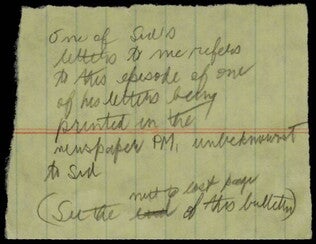 One of Sid's
letters to me refers
to this episode of one
of his letters being
printed in the
newspaper PM, unbeknownst
to Sid
next to last page
(See the end of this bulletin)